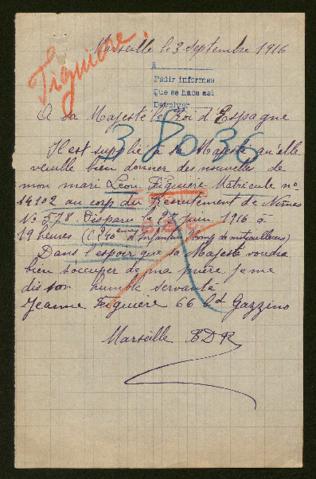 Marseille le 3 Septembre 1916
Figuière.
A
Pedir informes
Que se hace así
Devolver
A Sa Majesté le Roi d'Espagne
38036
Il est supplié à Sa Majesté qu'elle
veuille bien donner des nouvelles de
mon mari Léon Figuière Matricule no
14102 au corp du Recrutement de Nimes
No 578 Disparu le juin 1916 à
19 heures
Dans l'espoir que Sa Majesté voudra
bien s'occuper de ma prière je me
dis son humble servante
Jeanne Figuière 66 Bd Gazzino
Marseille BDR